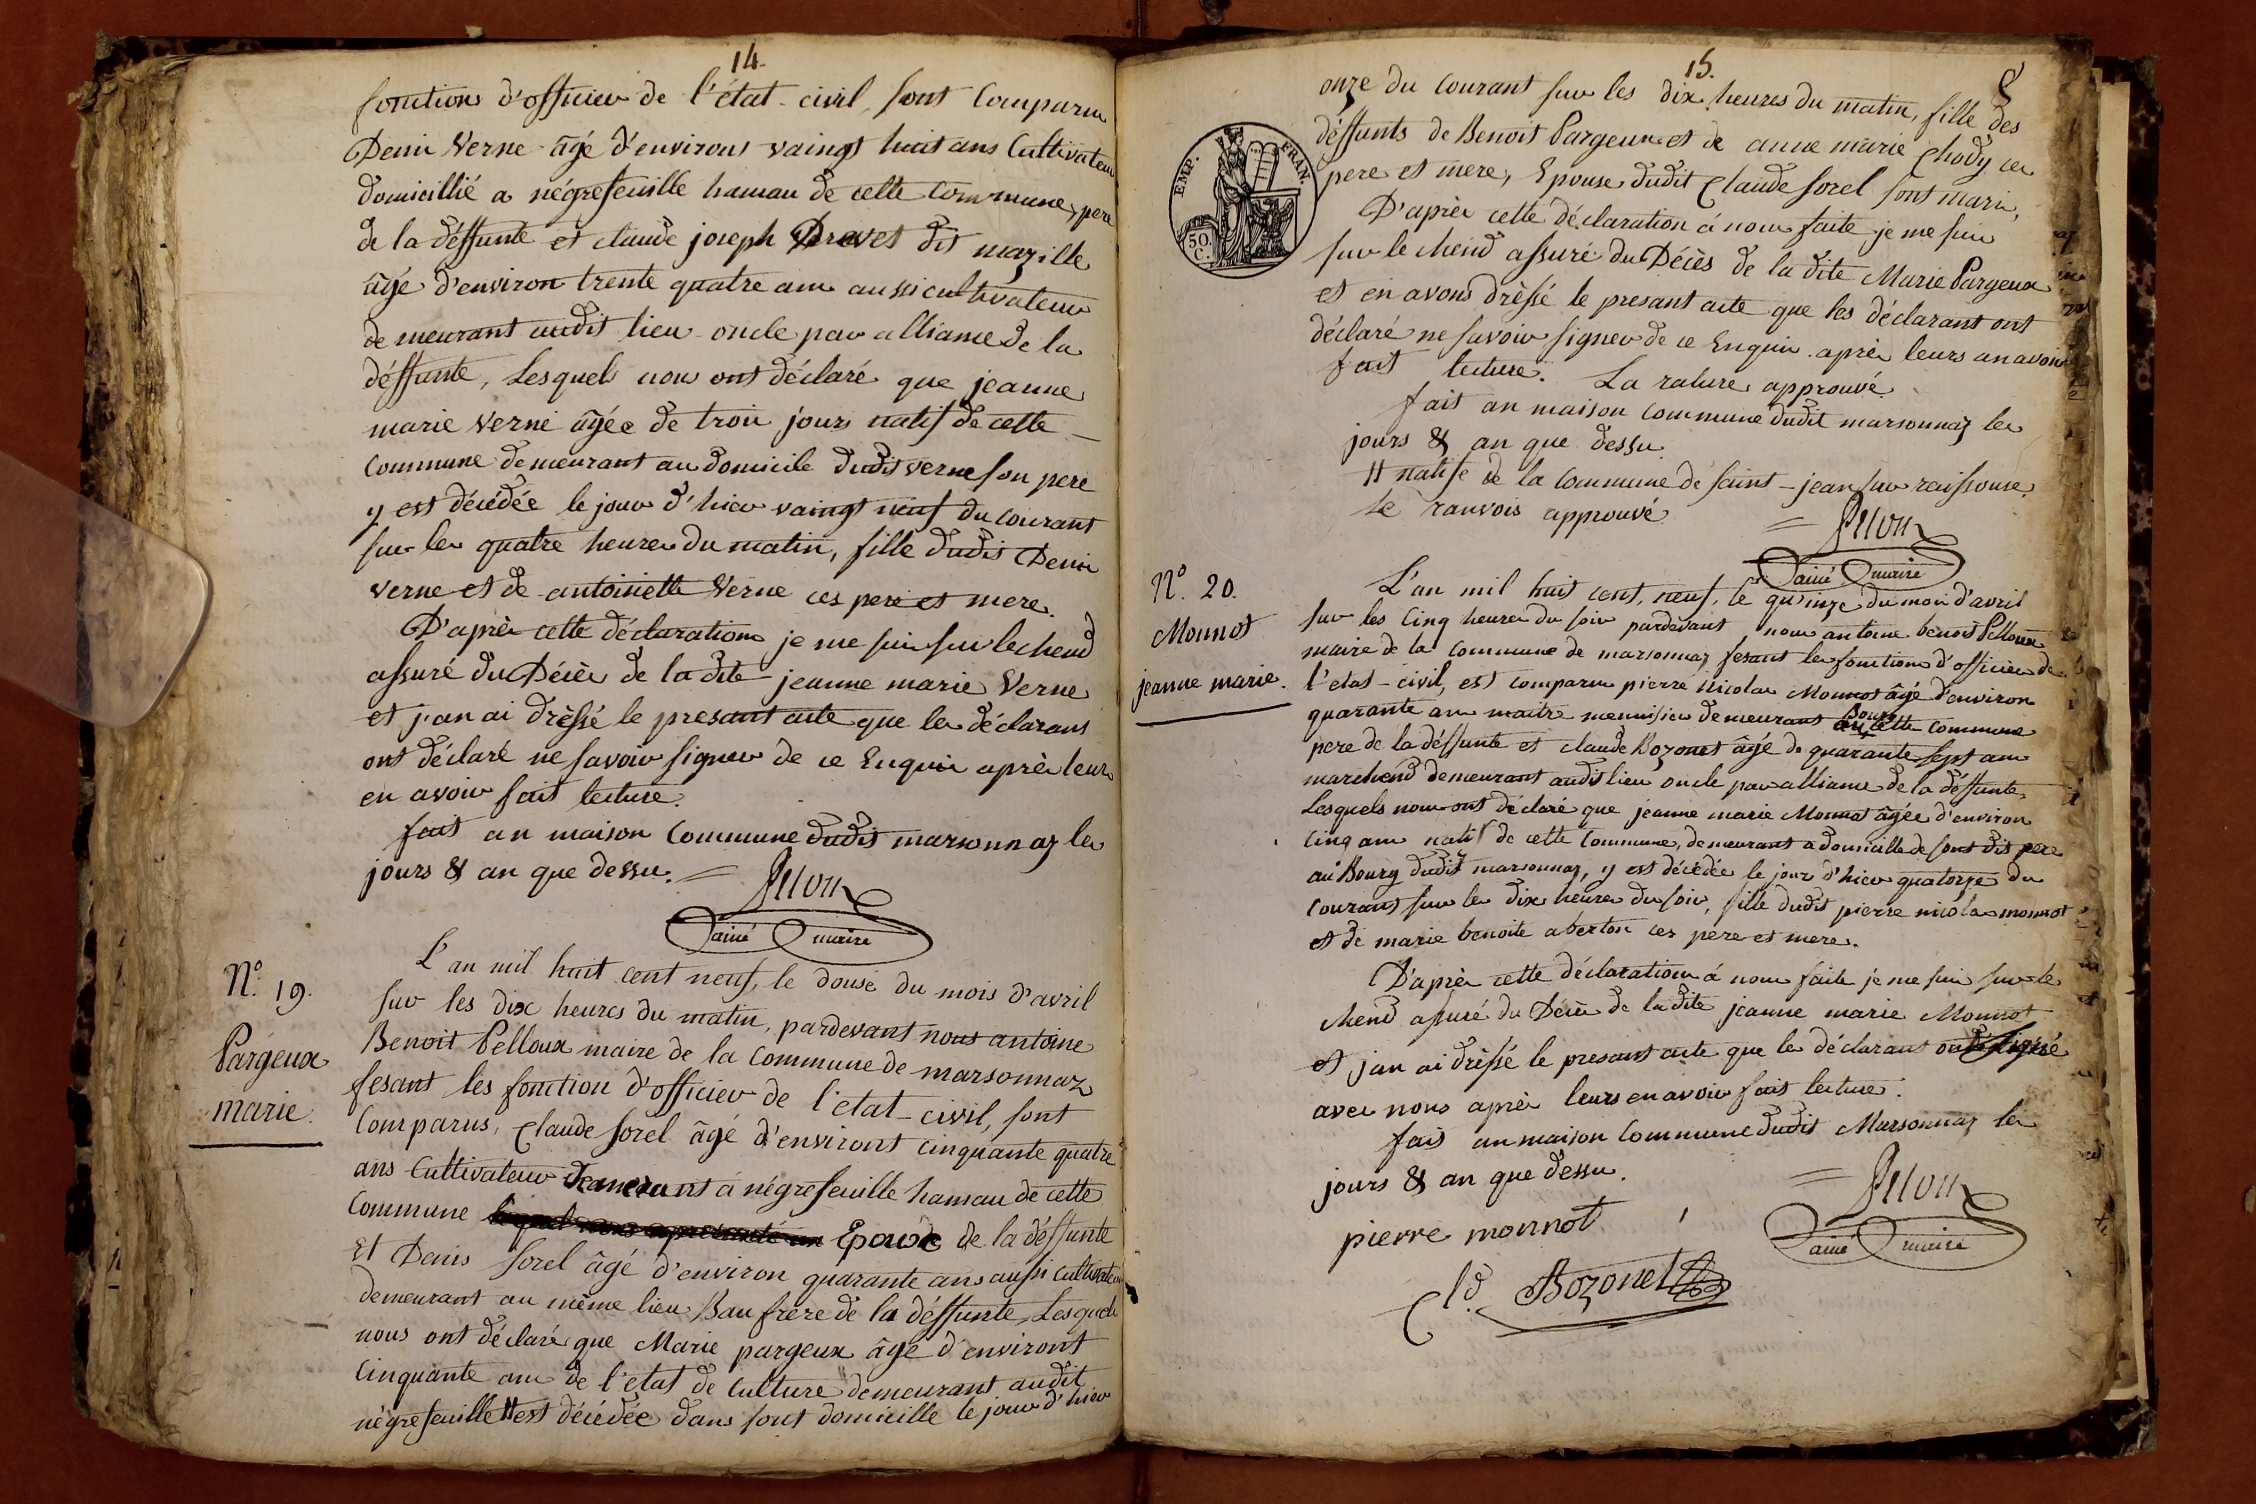 14.
fonction d'officier de l'état-civil, sont Comparu
Deni Verne âgé d'environt vaingt huit ans Cultivateur
domicillié a négrefeuille hamau de cette commune, pere
de la déffunte et claude joseph Dravet dit mazille
âgé d'environ trente quatre ans aussi cultivateur
demeurant audit lieu oncle par alliance de la
déffunte, Lesquels nous ont déclaré que jeanne
marie Verne âgée de trois jours natif de cette
commune demeurant au domicile dudit verne son pere
y est décédée le jour d'hier vaingt neuf du courant
sur les quatre heures du matin, fille dudit Deni
verne et de antoinette Verne ces pere et mere.
D'après cette déclaration je me suis sur lechend
assuré du Décès de la dite jeanne marie Verne
et j'an ai drèssé le presant acte que les déclarans
ont déclaré ne savoir signer de ce Enquis après leurs
en avoir fait lecture.
fait an maison Commune dudit marsonnaz les
jours & an que dessu.
ainé maire
N.º 19.
Pargeux
marie.
L'an mil huit cent neuf, le douse du mois d'avril
sur les dix heures du matin, pardevant nous antoine
Benoit Pelloux maire de la Commune de marsonnaz
fesant les fonction d'officier de l'etat-civil, sont
Comparus, Claude sorel âgé d'environt cinquante quatre
ans Cultivateur demeurant a négrefeuille hamau de cette
Commune Epoux de la déffunte
Et Denis sorel âgé d'environ quarante ans aussi cultivateur
demeurant au même lieu Bau frere de la déffunte, Lesquels
nous ont déclaré que Marie pargeux âgé d'environt
Cinquante ans de l'etat de Culture demeurant audit
négrefeuille # est décédée dans sont domicille le jour d'hier
15.
onze du courant sur les dix heures du matin, fille des
déffunts de Benoit Pargeux et de anne marie Chody ces
pere et mere, Epouse dudit Claude sorel sont mari,
EMP. FRAN.
50.
C.
D'après cette déclaration à nous faite je me suis
sur le chend assuré du Décès de la dite Marie Pargeux
et en avons drèssé le presant acte que les déclarant ont
déclaré ne savoir signer de ce Enquis après leurs an avoir
fait lecture. La rature approuvé.
fait an maison commune dudit marsonnaz les
jours & an que dessu.
# natife de la Commune de saint-jean sur raissouse.
Le ranvois approuvé
ainé maire
N.º 20.
Monnot
jeanne marie.
L'an mil huit cent, neuf, le quinze du mois d'avril
sur les Cinq heures du soir pardevant nous antoine benoit Pelloux
maire de la Commune de marsonnaz fesant les fonctions d'officier de
l'etat-civil, est comparu pierre nicolas Monnot âgé d'environ
quarante ans maitre mennisier demeurant Bourg cette commune
pere de la déffunte et claude Bozonet âgé de quarante sept ans
marchend demeurant audit lieu oncle par alliance de la déffunte,
Lesquels nous ont déclaré que jeanne marie Monnot âgée d'environ
Cinq ans natif de cette Commune, demeurant a domicille de sont dit pere
au Bourg dudit marsonnaz, y est décédée le jour d'hier quatorze du
Courant sur les dix heures du soir, fille dudit pierre nicolas monnot
et de marie benoite aberton ces pere et mere.
D'après cette déclaration à nous faite je me suis sur le
chend assuré du Décès de la dite jeanne marie Monnot
et j'an ai drèssé le presant acte que les déclarant ont signé
avec nous après leurs en avoir fait lecture.
fait an maison Commune dudit Marsonnaz les
jours & an que dessu.
pierre monnot
ainé maire
Cld. Bozonet